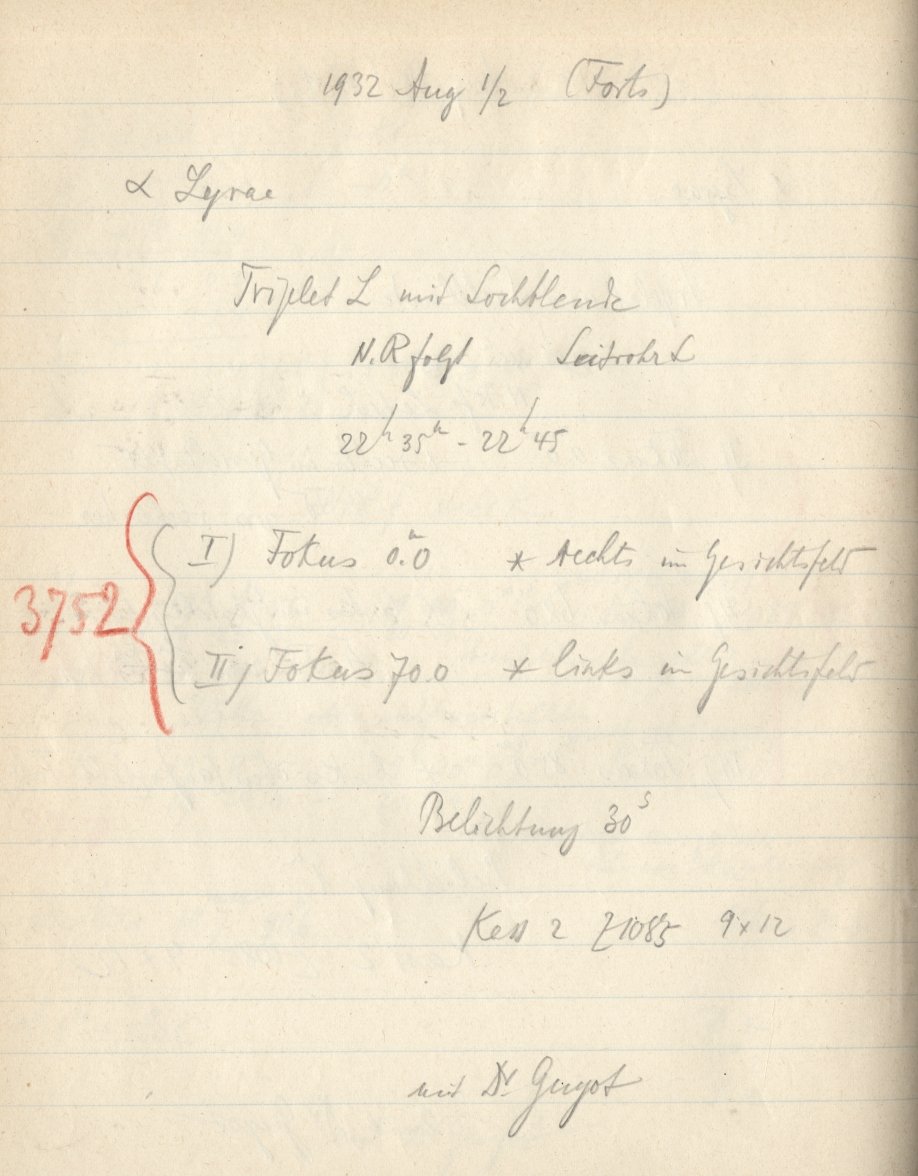 1932 Aug 1/2 (Forts)
α Lyrae
Triplet L mit Lochblende
N.R folgt Leitrohr L
22h 35m - 22h 45
I) Fokus 0.0 * rechts im Gesichtsfeld
3752
II) Fokus 70.0 * links im Gesichtsfeld
Belichtung 30s
Kass 2 Z1085 9x12
mit Dr Guyot